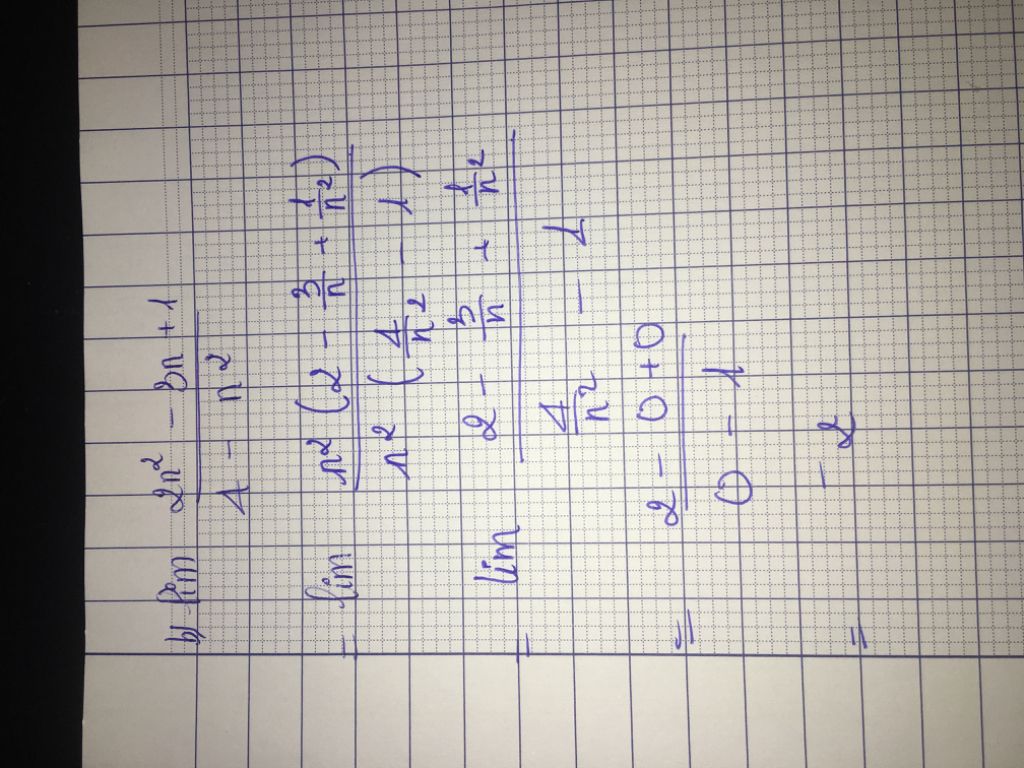 b) lim 2n² - 3n + 1
4 - n²
= lim n² (2 - 3/n + 1/n²)
n² (4/n² - 1)
= lim 2 - 3/n + 1/n²
4/n² - 1
= 2 - 0 + 0
0 - 1
= - 2